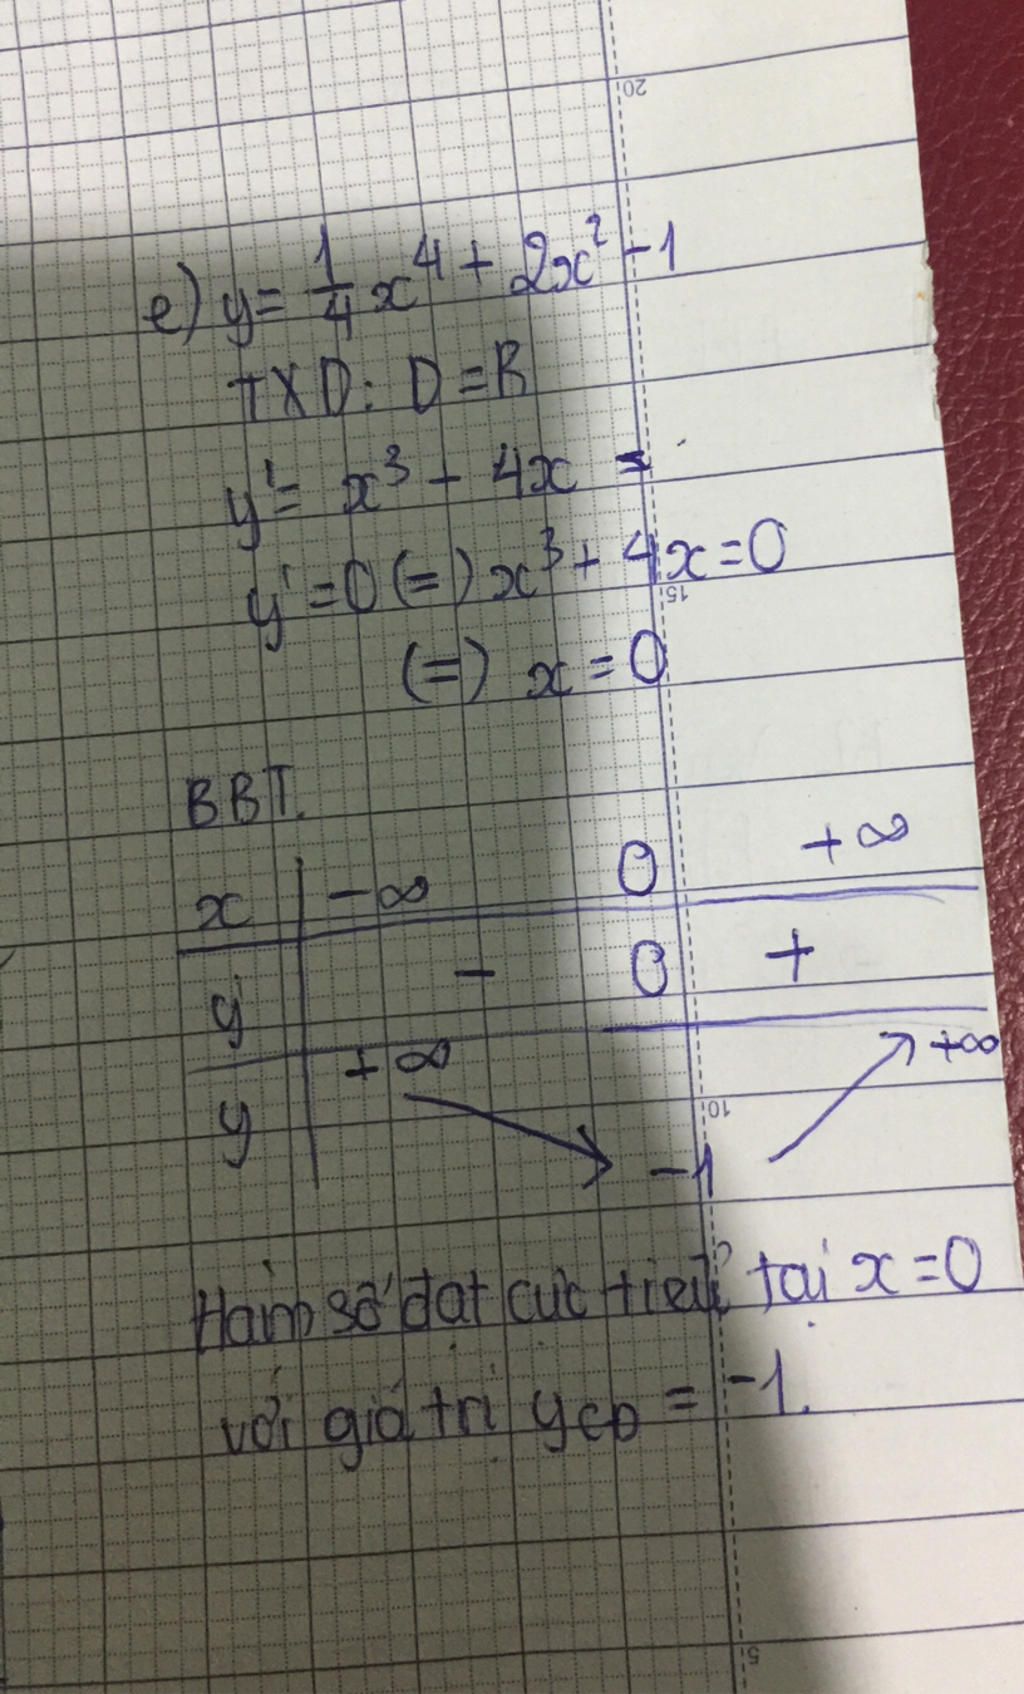 20
e) y = 1/4 x⁴ + 2x² - 1
TXD: D = R
y' = x³ + 4x =
y' = 0 (=) x³ + 4x = 0
15
(=) x = 0
BBT.
x | -∞ 0 +∞
y' | - 0 +
y | +∞ -1 +∞
10
Hàm số đạt cực tiểu tại x = 0
với giá trị yCD = -1.
5